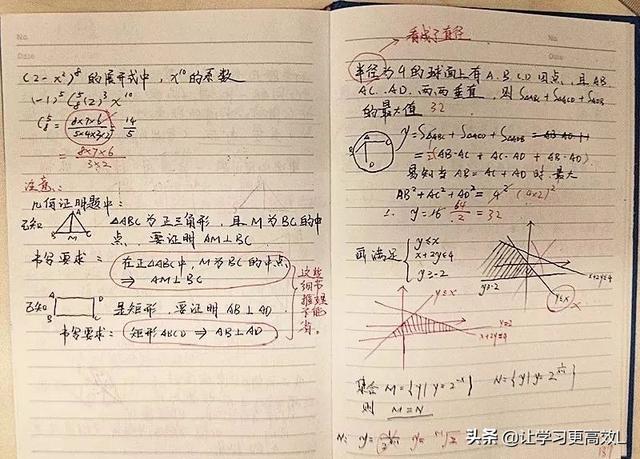 No.
Date
(2-x²)⁸的展开式中, x¹⁰的系数
(-1)⁵ C₈⁵ (2)³ x¹⁰
C₈⁵ = 8×7×6 / 5×4×3×2 = 14/5
= 8×7×6 / 3×2
注意:
几何证明题中:
已知 A B M C △ABC为正三角形, 且M为BC的中
点, 要证明 AM⊥BC
书写要求: 在正△ABC中, M为BC的中点
⇒ AM⊥BC
已知 A B C D 是矩形, 要证明 AB⊥AD
书写要求: 矩形ABCD ⇒ AB⊥AD.
这些细节推理不能省.
No.
Date
看成了直径
半径为4的球面上有A.B.C.D四点, 且AB.
AC.AD.两两垂直, 则 S△ABC+S△ACD+S△ADB
的最大值 32
y=S△ABC+S△ACD+S
=½(AB·AC+AC·AD+AB·AD)
易知当AB=AC=AD时.最大
AB²+AC²+AD²=4² (4×2)²
∴ y=16 64/2 = 32
画满足 { y≤x
x+2y≤4
y≥-2
y=-2
x+2y≤4
y≤x
y≤x
y=2
x+2y=4
集合 M={y|y=2⁻ˣ} N={y|y=2
则 M=N
N: y=
头条 @让学习更高效L